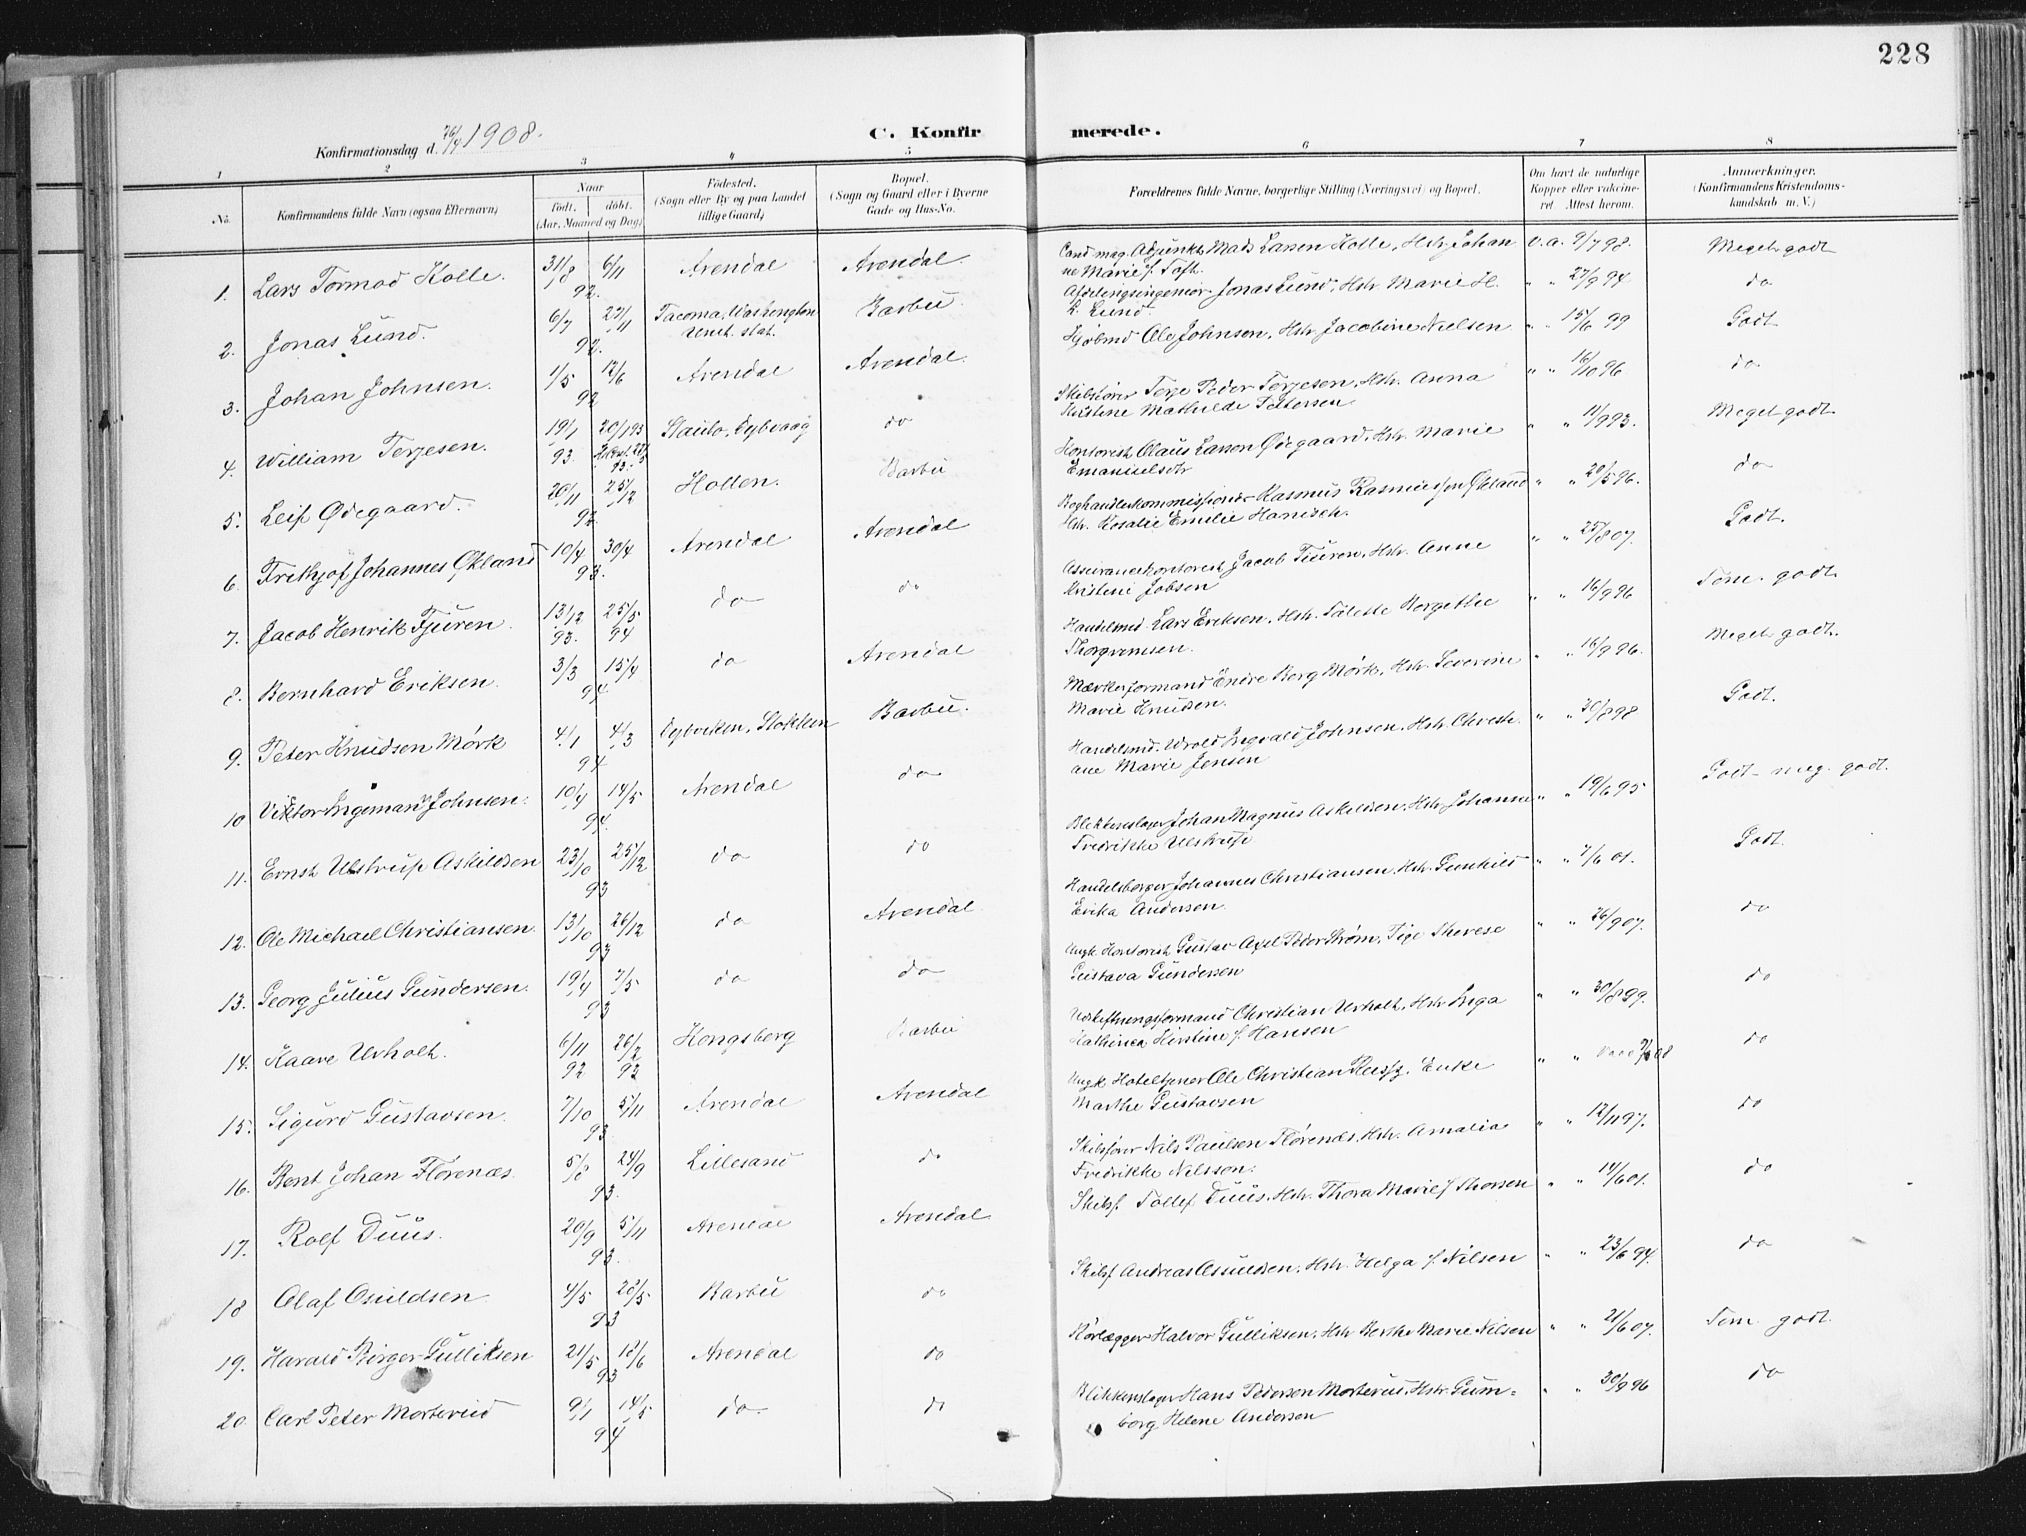 228
Konfirmationsdag d. 26/4 1908.
C. Konfirmerede.
1 2 3 4 5 6 7 8
No. Konfirmandens fulde Navn (ogsaa Efternavn) Naar født. døbt. (Aar, Maaned og Dag) Fødested. (Sogn eller By og paa Landet tillige Gaard) Bopæl. (Sogn og Gaard eller i Byerne Gade og Hus-No. Forældrenes fulde Navne, borgerlige Stilling (Næringsvei) og Bopæl. Om havt de naturlige Kopper eller vaccineret. Attest herom. Anmærkninger. (Konfirmandens Kristendomskundskab m. V.)
1. Lars Tormod Kolle. 31/8 6/11 92. Arendal Arendal. Cand. mag. Adjunkt Mads Larsen Kolle, Hstr. Johanne Marie f. Toft. v. a. 9/7 98. Meget godt
2. Jonas Lund. 6/7 27/11 92. Tacoma, Washington Unit. stat. Barbu. Afdelingsingeniør Jonas Lund, Hstr. Marie H. L. Lund " " 27/9 94 do
3. Johan Johnsen. 1/5 12/6 92 Arendal Arendal. Kjøbmd Ole Johnsen, Hstr. Jacobine Nielsen " " 15/6 99 Godt
4. William Terjesen. 19/1 93. 20/1 93 Staubo, Dybvaag do Skibsfører Terje Peder Terjesen, Hstr. Anna Kristine Mathilde Pettersen " " 16/10 96. do
5. Leif Ødegaard. 20/11 25/12 92. Holten. Barbu Kontorist Olaus Larsen Ødegaard, Hstr. Marie Emanuelsdtr " " 11/9 93. Meget godt.
6. Frithjof Johannes Økland 10/4 30/4 93. Arendal Arendal Boghandlerkommissionær Rasmus Rasmussen Økland Hstr. Rosalie Emilie Hanisch. " " 20/5 96. do
7. Jacob Henrik Tjuren. 13/12 93. 25/5 94 do do Assurancekontorist Jacob Tjuren, Hstr. Anne Kristine Jobsen " " 25/8 07. Godt.
8. Bernhard Eriksen. 3/3 15/4 94 do Arendal Handelsmd. Lars Eriksen, Hstr. Tolette Borgethe " " 16/9 96 Tem. godt.
9. Peter Knudsen Mørk 4/1 4/3 94 Dybviken, Stokken Barbu. Værkerformand Endre Berg Mørk, Hstr. Severine Marie Knudsen. " " 16/9 96. Meget godt.
10 Viktor Ingeman Johnsen. 10/4 14/5 94. Arendal do Handelsmd. Wrold Ingvald Johnsen, Hstr. Christiane Marie Jensen " " 30/8 98 Godt.
11. Ernst Ulstrup Askildsen 23/10 25/12 93 do do Blikkenslager Johan Magnus Askildsen, Hstr. Johanne Fredrikke Ulstrup " " 19/6 95 Godt - meg. godt.
12. Ole Michael Christiansen. 13/10 26/12 93 do Arendal. Handelsborger Johannes Christiansen, Hstr. Gunhild Erika Andersen. " " 7/6 01. Godt.
13. Georg Julius Gundersen. 19/4 7/5 93 do do Ungk. Kontorist Gustav Axel Peder Strøm, Pige Therese Gustava Gundersen " " 26/9 07. do
14. Kaare Urholt. 6/11 92 26/2 93 Kongsberg Barbu Udskiftningsformand Christian Urholt, Hstr Inga Kathinca Kirstine f. Hansen " " 30/8 99. do
15. Sigurd Gustavsen. 7/10 5/11 93 Arendal Arendal Ungk. Hoteltjener Ole Christian Rees, Enke Marthe Gustavsen " " do
16. Bent Johan Florenæs. 5/8 24/9 93. Lillesand do Skibsfører Nils Paulsen Florenæs, Hstr. Amalia Fredrikke Nilsson. " " 12/11 97. do
17. Rolf Duus. 20/9 5/11 93. Arendal Arendal Skibsf. Tollef Duus, Hstr. Thora Marie f. Thorsen " " 14/6 01. do
18 Olaf Osuldsen 4/5 28/5 93 Barbu do Skibsf Andreas Osuldsen, Hstr. Helga f. Nilsen " " 23/6 94. do
19. Harald Birger Gulliksen 21/5 18/6 93 Arendal do Rørlægger Halvor Gulliksen, Hstr Berthe Marie Nilsen " " 21/6 07. Tem. godt
20. Carl Peter Morterud 9/1 14/5 94 do. do Blikkenslager Hans Pedersen Morterud, Hstr. Gumborg Helene Andersen " " 30/9 96 do